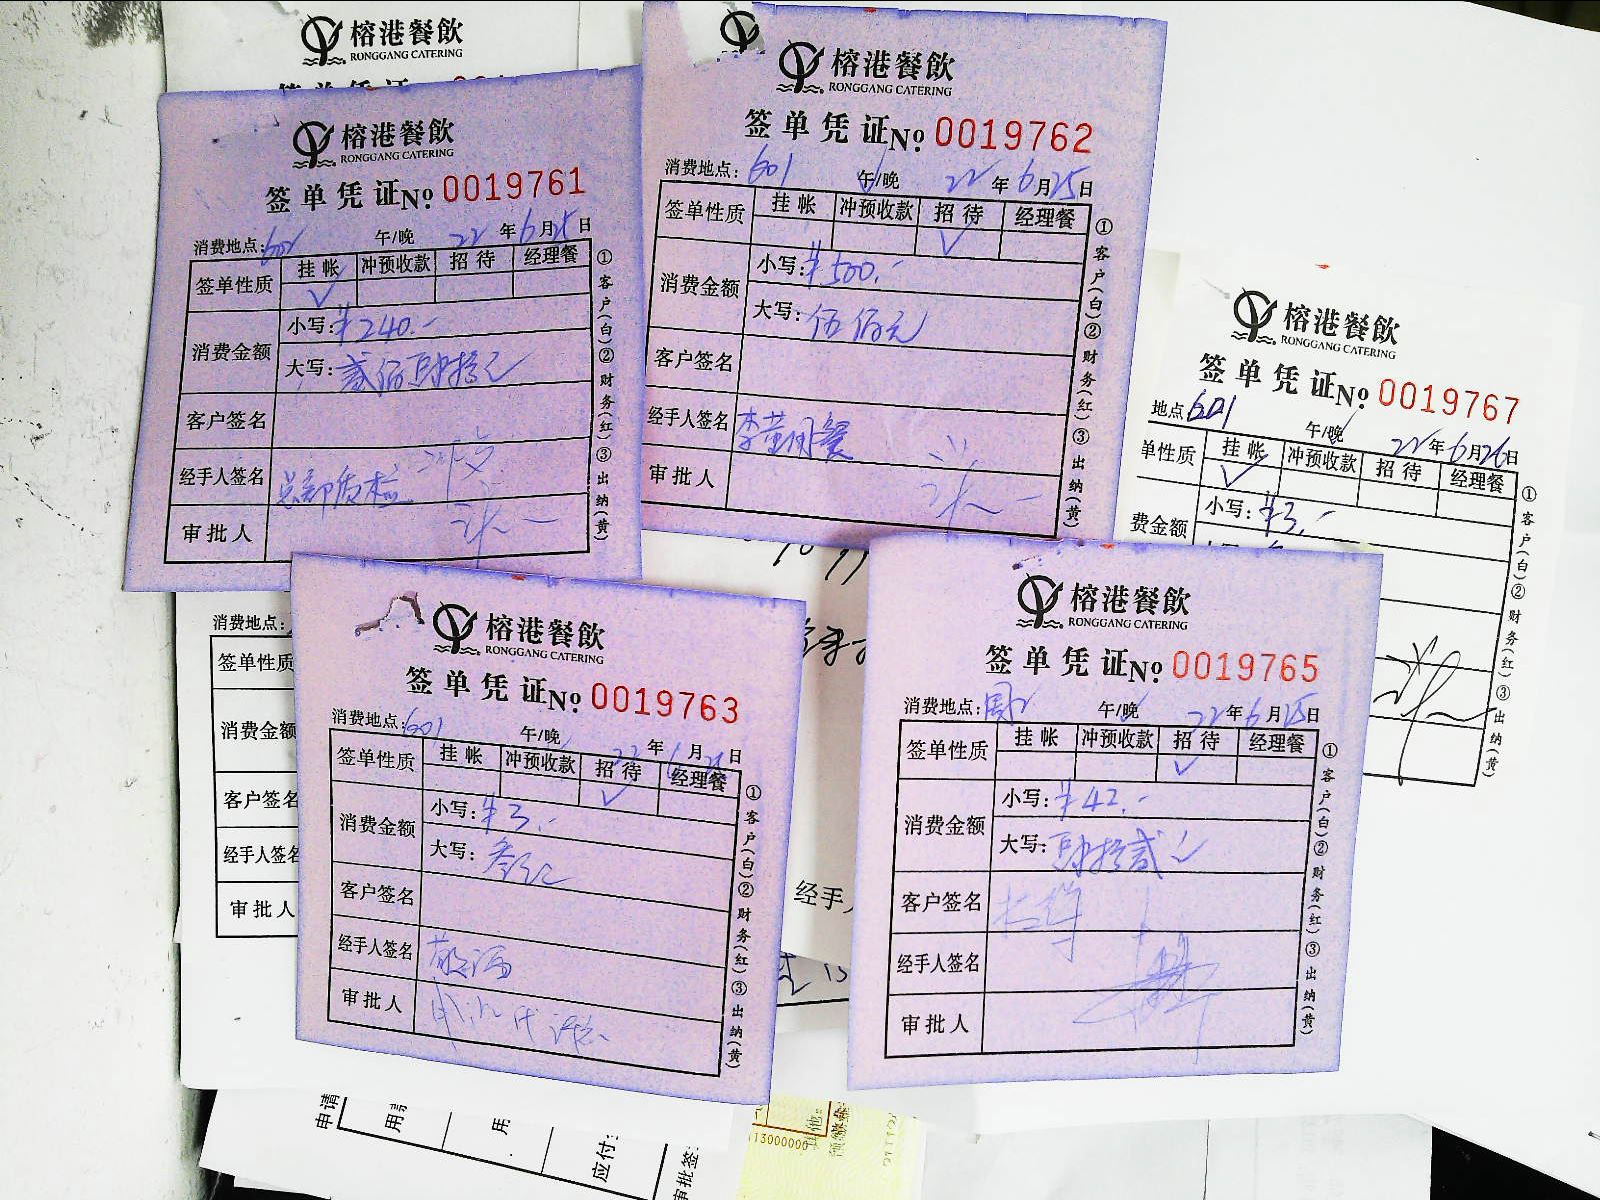 榕港餐飲
RONGGANG CATERING
榕港餐飲
RONGGANG CATERING
签单凭证No 0019761
消费地点: 午/晚 22年6月日
签单性质 挂帐 冲预收款 招待 经理餐
✓
消费金额 小写:¥240.-
大写:贰佰肆拾元
客户签名
经手人签名 总部质检
审批人
①客户(白)②财务(红)③出纳(黄)
榕港餐飲
RONGGANG CATERING
签单凭证No 0019762
消费地点:601 午/晚 22年6月25日
签单性质 挂帐 冲预收款 招待 经理餐
✓
消费金额 小写:¥500.-
大写:伍佰元
客户签名
经手人签名
审批人
①客户(白)②财务(红)③出纳(黄)
榕港餐飲
RONGGANG CATERING
签单凭证No 0019767
地点601 午/晚 22年6月26日
单性质 挂帐 冲预收款 招待 经理餐
✓
费金额 小写:¥3.-
①客户(白)②财务(红)③出纳(黄)
消费地点:
签单性质
消费金额
客户签名
经手人签名
审批人
榕港餐飲
RONGGANG CATERING
签单凭证No 0019763
消费地点:601 午/晚 22年6月日
签单性质 挂帐 冲预收款 招待 经理餐
✓
消费金额 小写:¥3.-
大写:叁元
客户签名
经手人签名
审批人
①客户(白)②财务(红)③出纳(黄)
经手人
榕港餐飲
RONGGANG CATERING
签单凭证No 0019765
消费地点: 午/晚 22年6月25日
签单性质 挂帐 冲预收款 招待 经理餐
✓
消费金额 小写:¥42.-
大写:肆拾贰元
客户签名
经手人签名
审批人
①客户(白)②财务(红)③出纳(黄)
申请
用
应付:
审批签
13000000